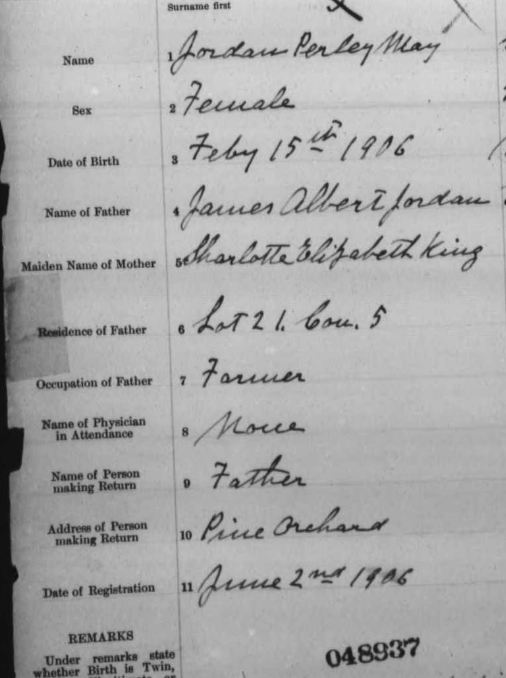 Surname first
Name 1 Jordan Perley May
Sex 2 Female
Date of Birth 3 Feby 15th 1906
Name of Father 4 James Albert Jordan
Maiden Name of Mother 5 Sharlotte Elizabeth King
Residence of Father 6 Lot 21. Con. 5
Occupation of Father 7 Farmer
Name of Physician
in Attendance 8 None
Name of Person
making Return 9 Father
Address of Person
making Return 10 Pine Orchard
Date of Registration 11 June 2nd 1906
REMARKS
048937
Under remarks state
whether Birth is Twin,